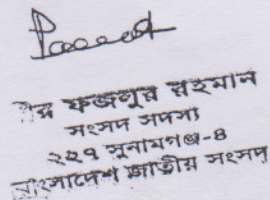 পীর ফজলুর রহমান
সংসদ সদস্য
২২৭ সুনামগঞ্জ-৪
বাংলাদেশ জাতীয় সংসদ